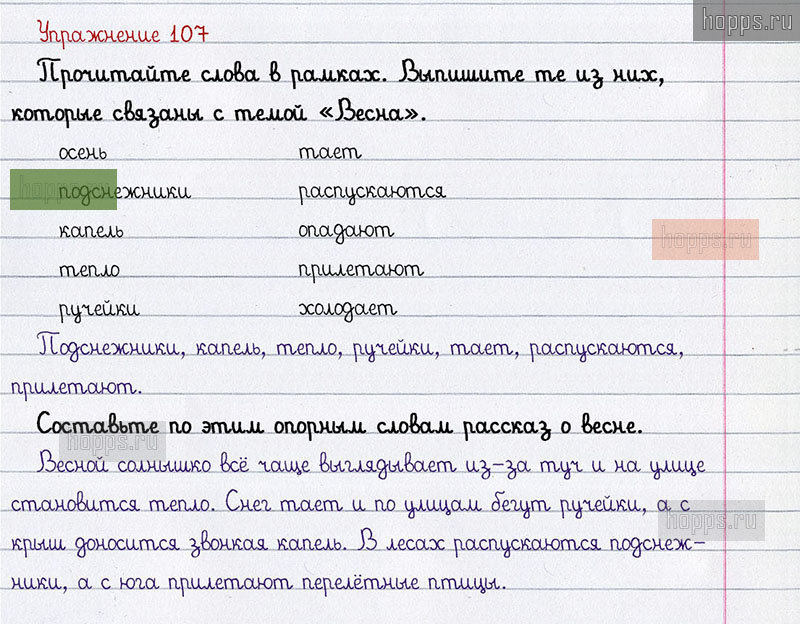 hopps.ru
Упражнение 107
Прочитайте слова в рамках. Выпишите те из них,
которые связаны с темой «Весна».
осень тает
подснежники распускаются
капель опадают
hopps.ru
тепло прилетают
ручейки холодает
Подснежники, капель, тепло, ручейки, тает, распускаются,
прилетают.
Составьте по этим опорным словам рассказ о весне.
hopps.ru
Весной солнышко всё чаще выглядывает из-за туч и на улице
становится тепло. Снег тает и по улицам бегут ручейки, а с
hopps.ru
крыш доносится звонкая капель. В лесах распускаются подснеж-
ники, а с юга прилетают перелётные птицы.